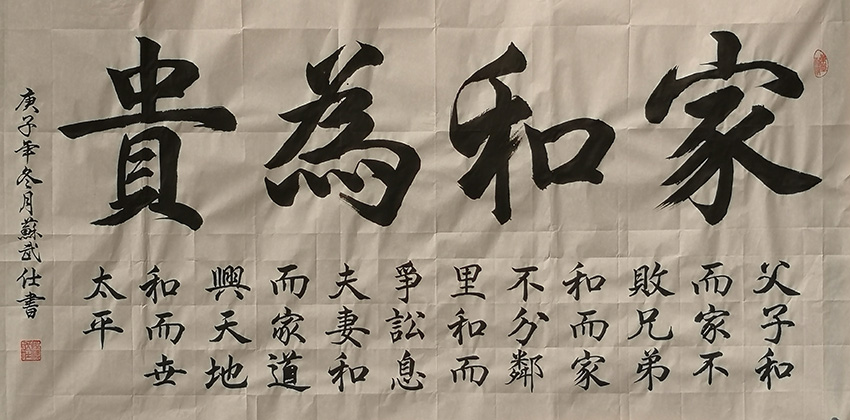 家和為貴
父子和
而家不
敗兄弟
和而家
不分鄰
里和而
爭訟息
夫妻和
而家道
興天地
和而世
太平
庚子年冬月蘇武仕書